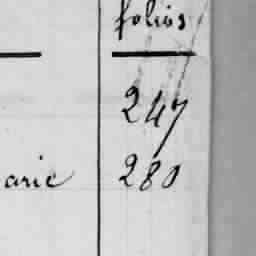 folios
247
arie 280